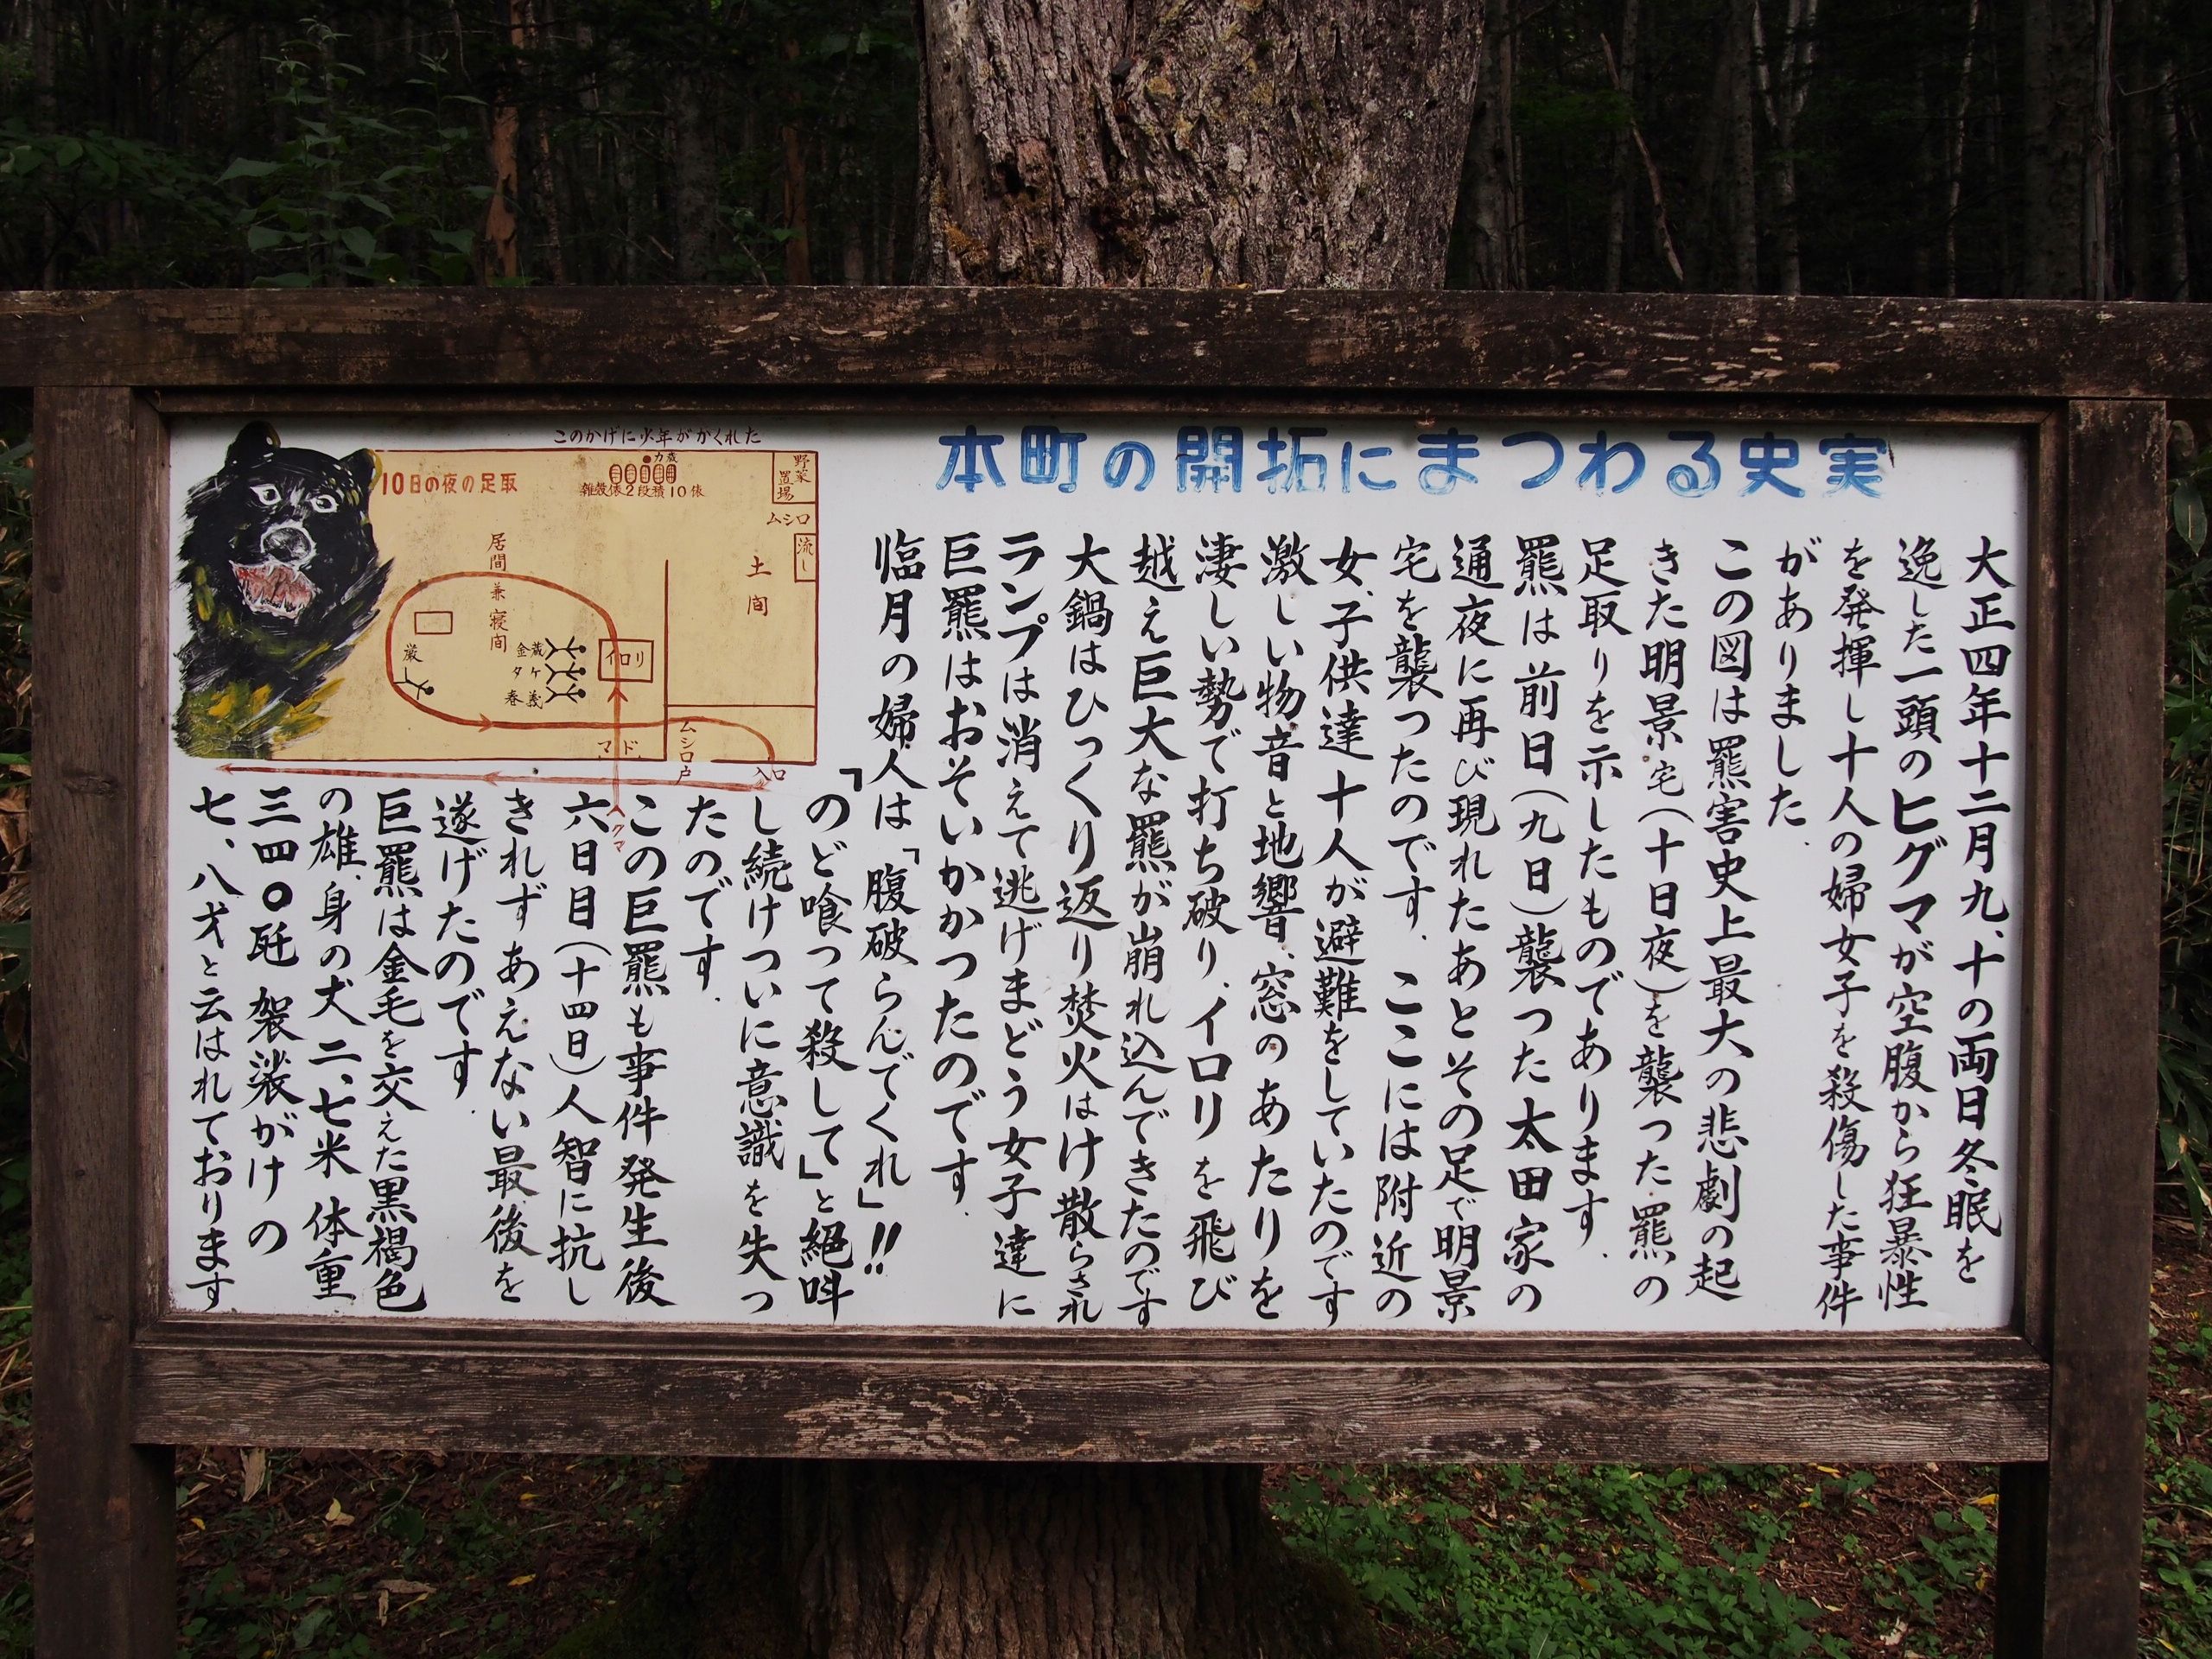 本町の開拓にまつわる史実
大正四年十二月九、十の両日冬眠を
逸した一頭のヒグマが空腹から狂暴性
を発揮し十人の婦女子を殺傷した事件
がありました.
この図は羆害史上最大の悲劇の起
きた明景宅(十日夜)を襲った羆の
足取りを示したものであります.
羆は前日(九日)襲った太田家の
通夜に再び現れたあとその足で明景
宅を襲ったのです. ここには附近の
女、子供達十人が避難をしていたのです
激しい物音と地響、窓のあたりを
凄しい勢で打ち破り、イロリを飛び
越え巨大な羆が崩れ込んできたのです
大鍋はひっくり返り焚火はけ散らされ
ランプは消えて逃げまどう女子達に
巨羆はおそいかかつたのです.
臨月の婦人は「腹破らんでくれ」!!
「のど喰って殺して」と絶叫
し続けついに意識を失っ
たのです.
この巨羆も事件発生後
六日目(十四日)人智に抗し
きれずあえない最後を
遂げたのです.
巨羆は金毛を交えた黒褐色
の雄、身の丈二、七米 体重
三四〇瓩 袈裟がけの
七、八才と云はれております
このかげに少年がかくれた
10日の夜の足取
力蔵
雑穀俵2段積10俵
野菜置場
ムシロ
流し
土間
居間兼寝間
イロリ
金蔵
タケ
春義
巌
マド
ムシロ戸
入口
クマ